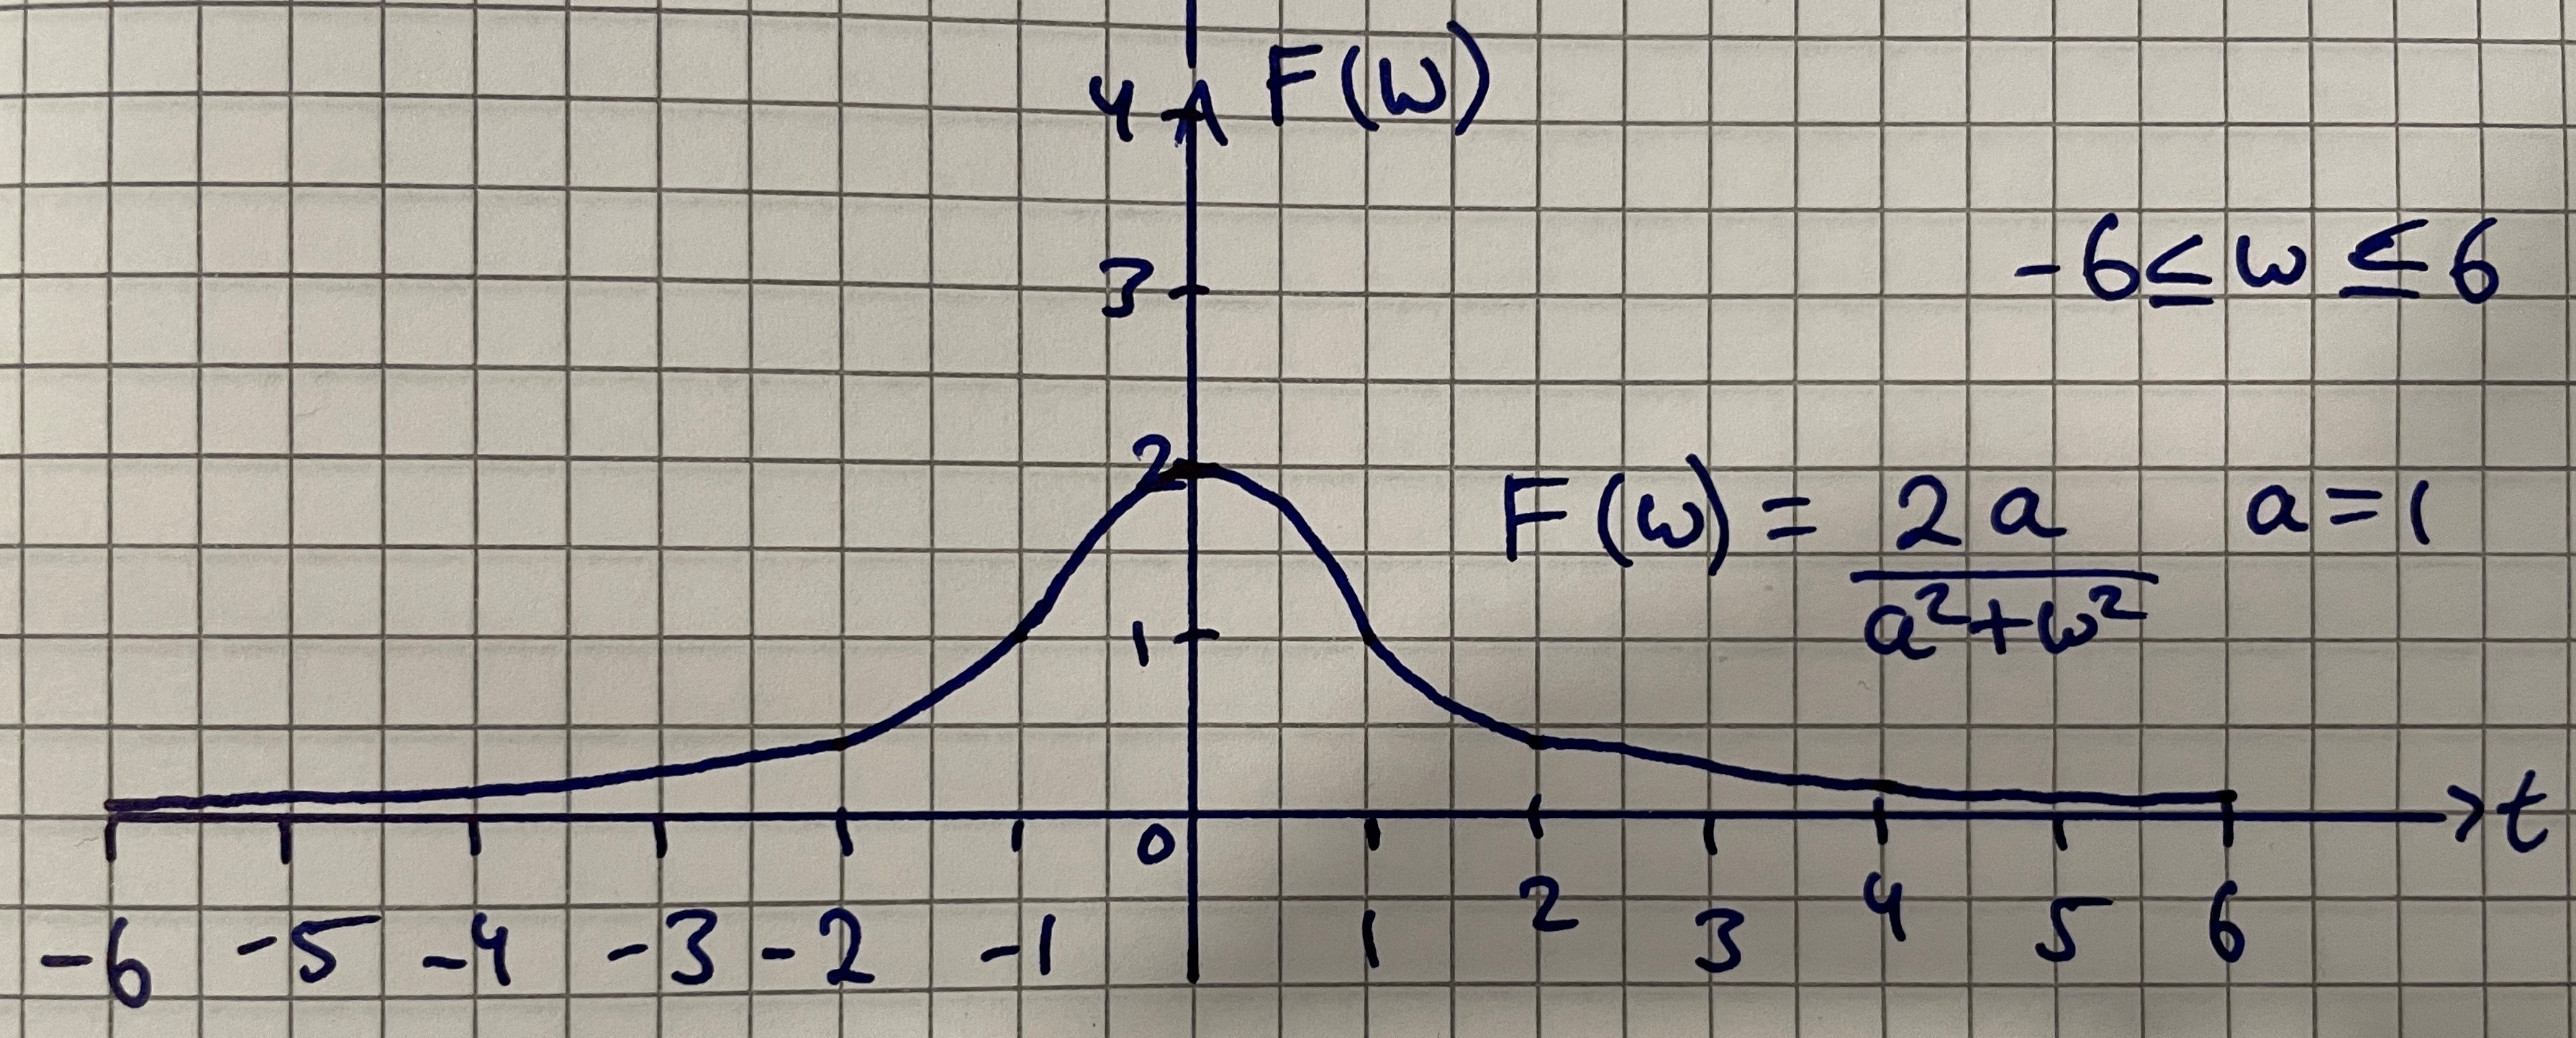 4 F(ω)
3
-6 ≤ ω ≤ 6
2
F(ω) = 2a / a²+ω² a=1
1
0
t
-6 -5 -4 -3 -2 -1 1 2 3 4 5 6